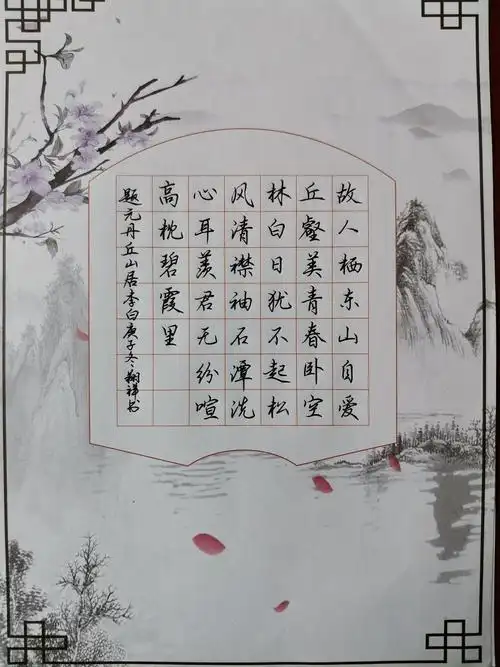 故人栖东山自爱
丘壑美青春卧空
林白日犹不起松
风清襟袖石潭洗
心耳羡君无纷喧
高枕碧霞里
题元丹丘山居李白庚子冬翔祥书